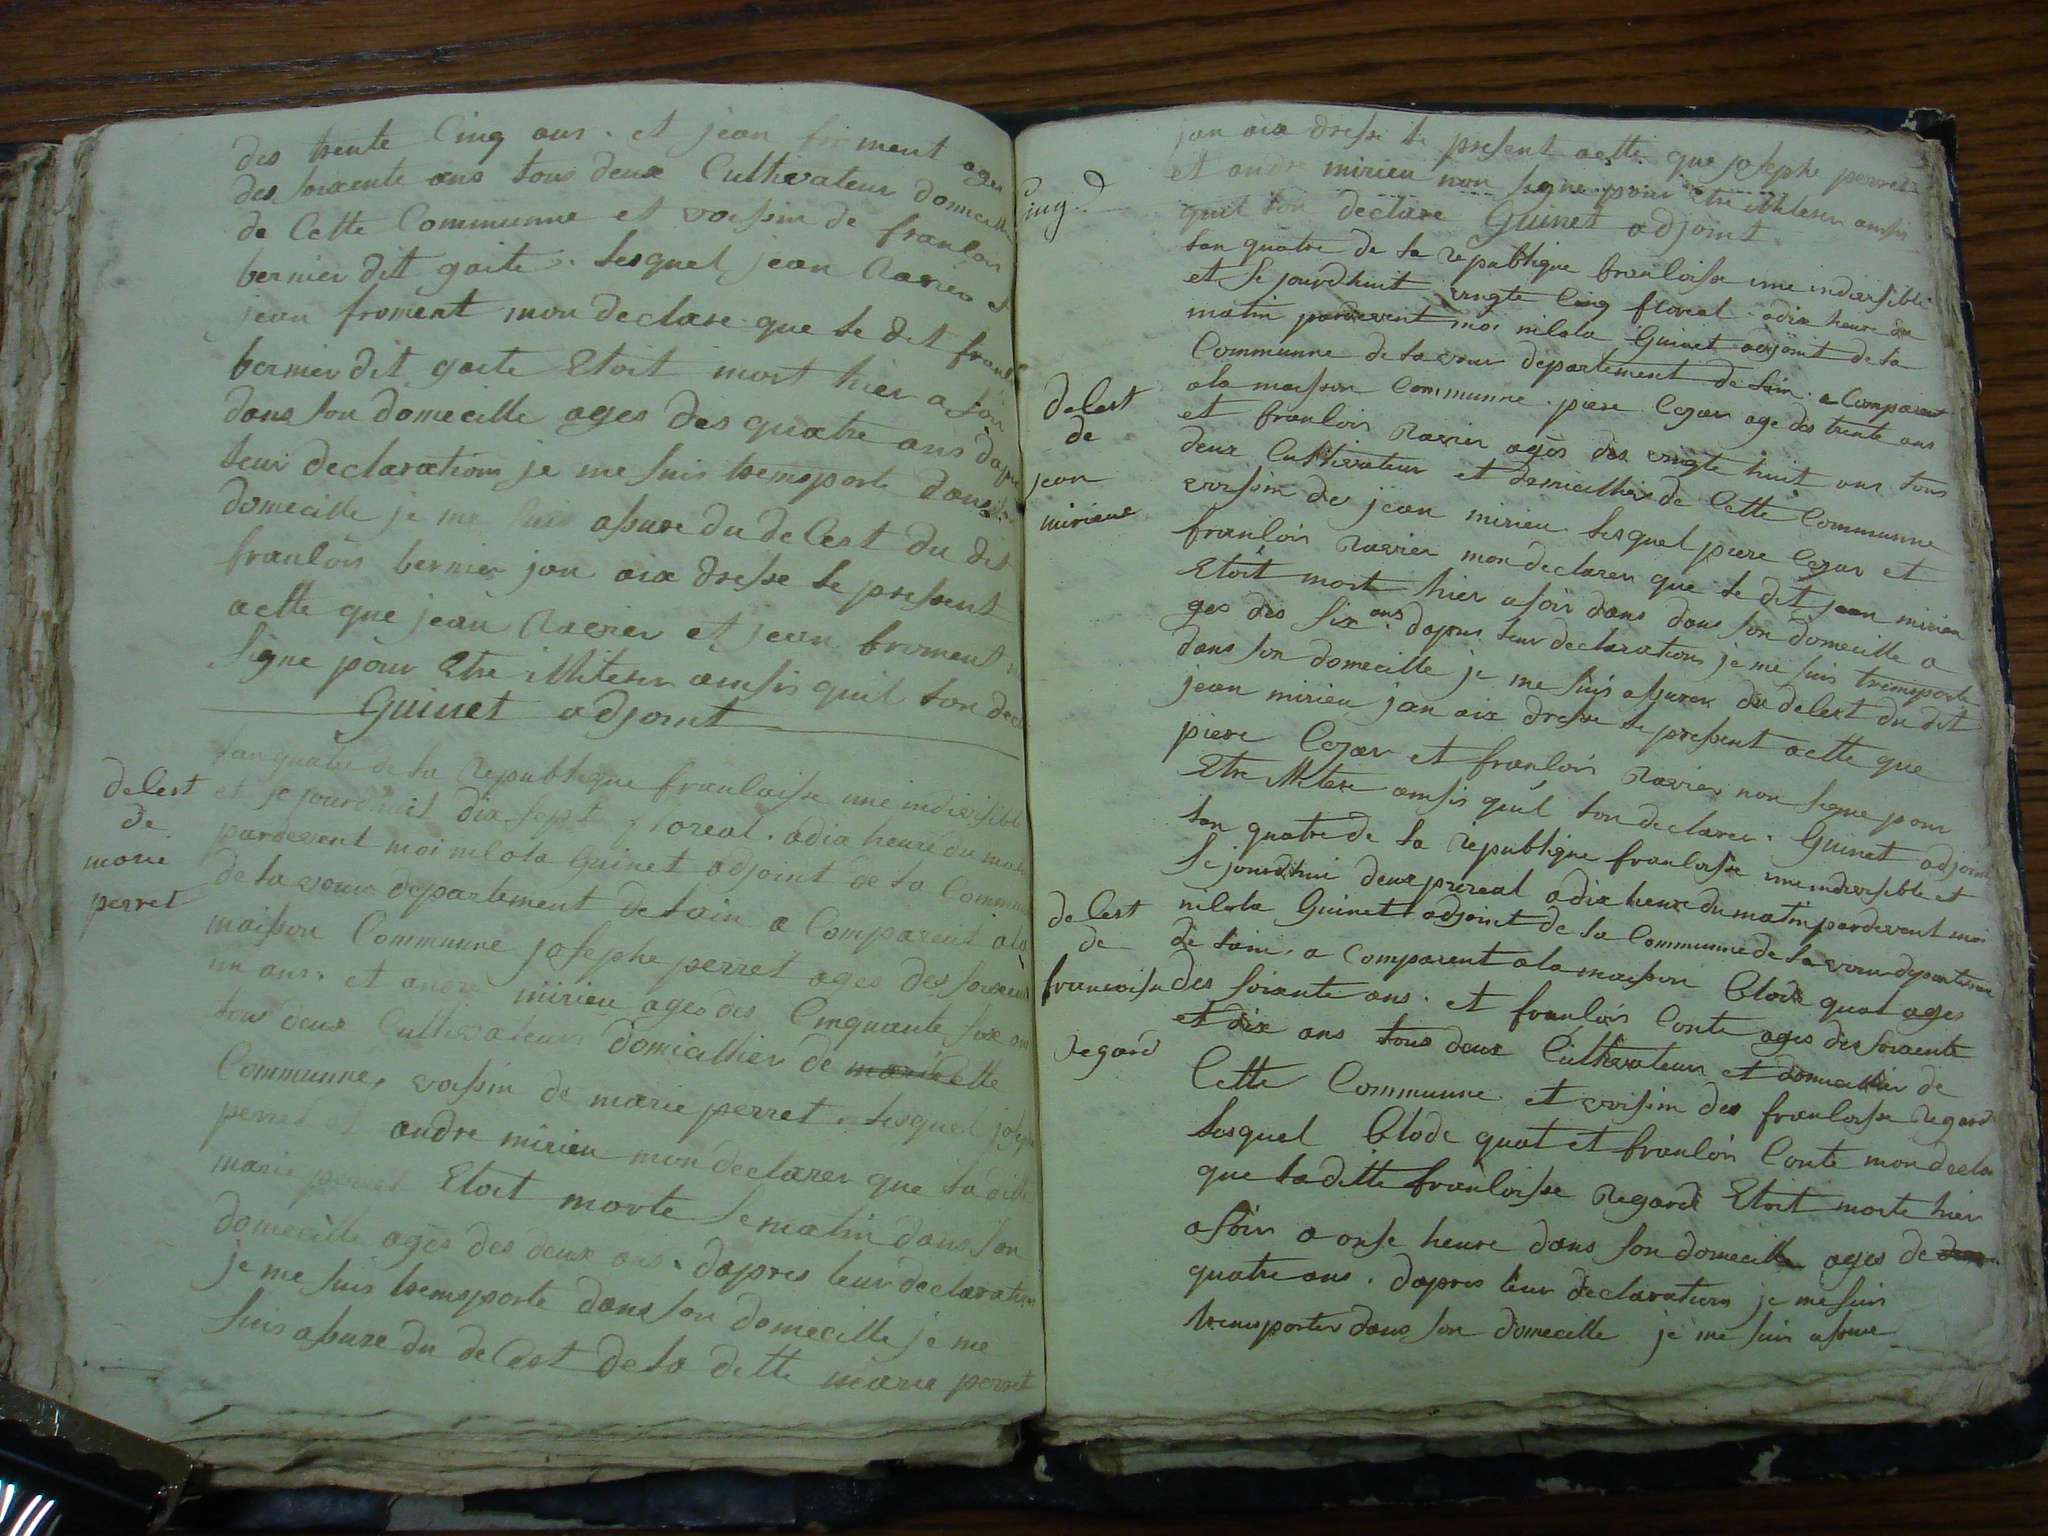 des trente Cinq ans. et jean froment ages
des soixente ans tous deux Cultivateur domicillie
de Cette Communne et voissin de franÇois
bernier dit gaite. lesquel jean Ravier et
jean froment mon declare que le dit franÇ
bernier dit gaite Etoit mort hier a soir
dans son domecille ages des quatre ans dapre
leur declarations je me suis trensporte dans
domecille je me suis assure du deCest du dit
franÇois bernier jan aix dresse le pressent
aette que jean Ravier et jean froment n
signe pour Etre illiterer ainssis quil lon decl
Guinet adjoint
deCest
de
marie
perret
lan quatre de la Republique franÇaisse une indivisible
et se jourdhuit dix sept floreal. a dix heure du matin
pardevent moi niCola Guinet adjoint de la Commune
de lavour departement de lain a Comparent a la
maisson Communne josephe perret ages des soixente
un ans. et andre mirieu ages des Cinquante six ans
tous deux Cultivateurs domicillier de Cette
Communne, voissin de marie perret. lesquel josephe
perret et andre mirieu mon declarer que la dite
marie perret Etoit morte se matin dans son
domecille ages des deux ans. dapres leur declaration
je me suis trensporte dans son domecille je me
suis assure du deCest de la ditte marie perret
Cinq.
jan aix dresse le present aette que josephe perret
et andre mirieu non signe pour Etre illiterer ainssis
quil lon declare Guinet adjoint
deCest
de
jean
mirieue
lan quatre de la republique franÇaisse une indivisible
et se jourdhuit vingte Cinq floreal a dix heure du
matin pardevent moi niCola Guinet adjoint de la
Communne de lavour departement de lain. a Comparent
a la maisson Communne. piere Cezar age des trente ans
et franÇois Ravier ages des vingte huit ans tous
deux Cultivateur et domicillier de Cette Communne
voissin de jean mirieu lesquel piere Cezar et
franÇois Ravier mon declarer que le dit jean mirieu
Etoit mort hier a soir dans dans son domecille a
ges des six ans. dapres leur declarations je me suis trensporte
dans son domecille je me suis assurer du deCest du dit
jean mirieu jan aix dresse le pressent aette que
piere Cezar et franÇois Ravier non signe pour
Etre illitere ainssis quil lon declarer. Guinet adjoint
deCest
de
francoisse
regard
lan quatre de la republique franÇaisse une indivisible et
se jourdhui deux prireal a dix heure du matin pardevent moi
niCola Guinet adjoint de la Communne de lavour departement
de lain, a Comparent a la maisson Clode quat ages
des soixante ans. et franÇois Conte ages des soixente
et dix ans tous deux Cultivateur et domicillier de
Cette Communne et voissin des franÇoisse Regard
lesquel Clode quat et franÇois Conte mon declar
que la ditte franÇoisse Regard Etoit morte hier
a soir a onse heure dans son domecille ages de
quatre ans. dapres leur declarations je me suis
trensporter dans son domecille je me suis assure